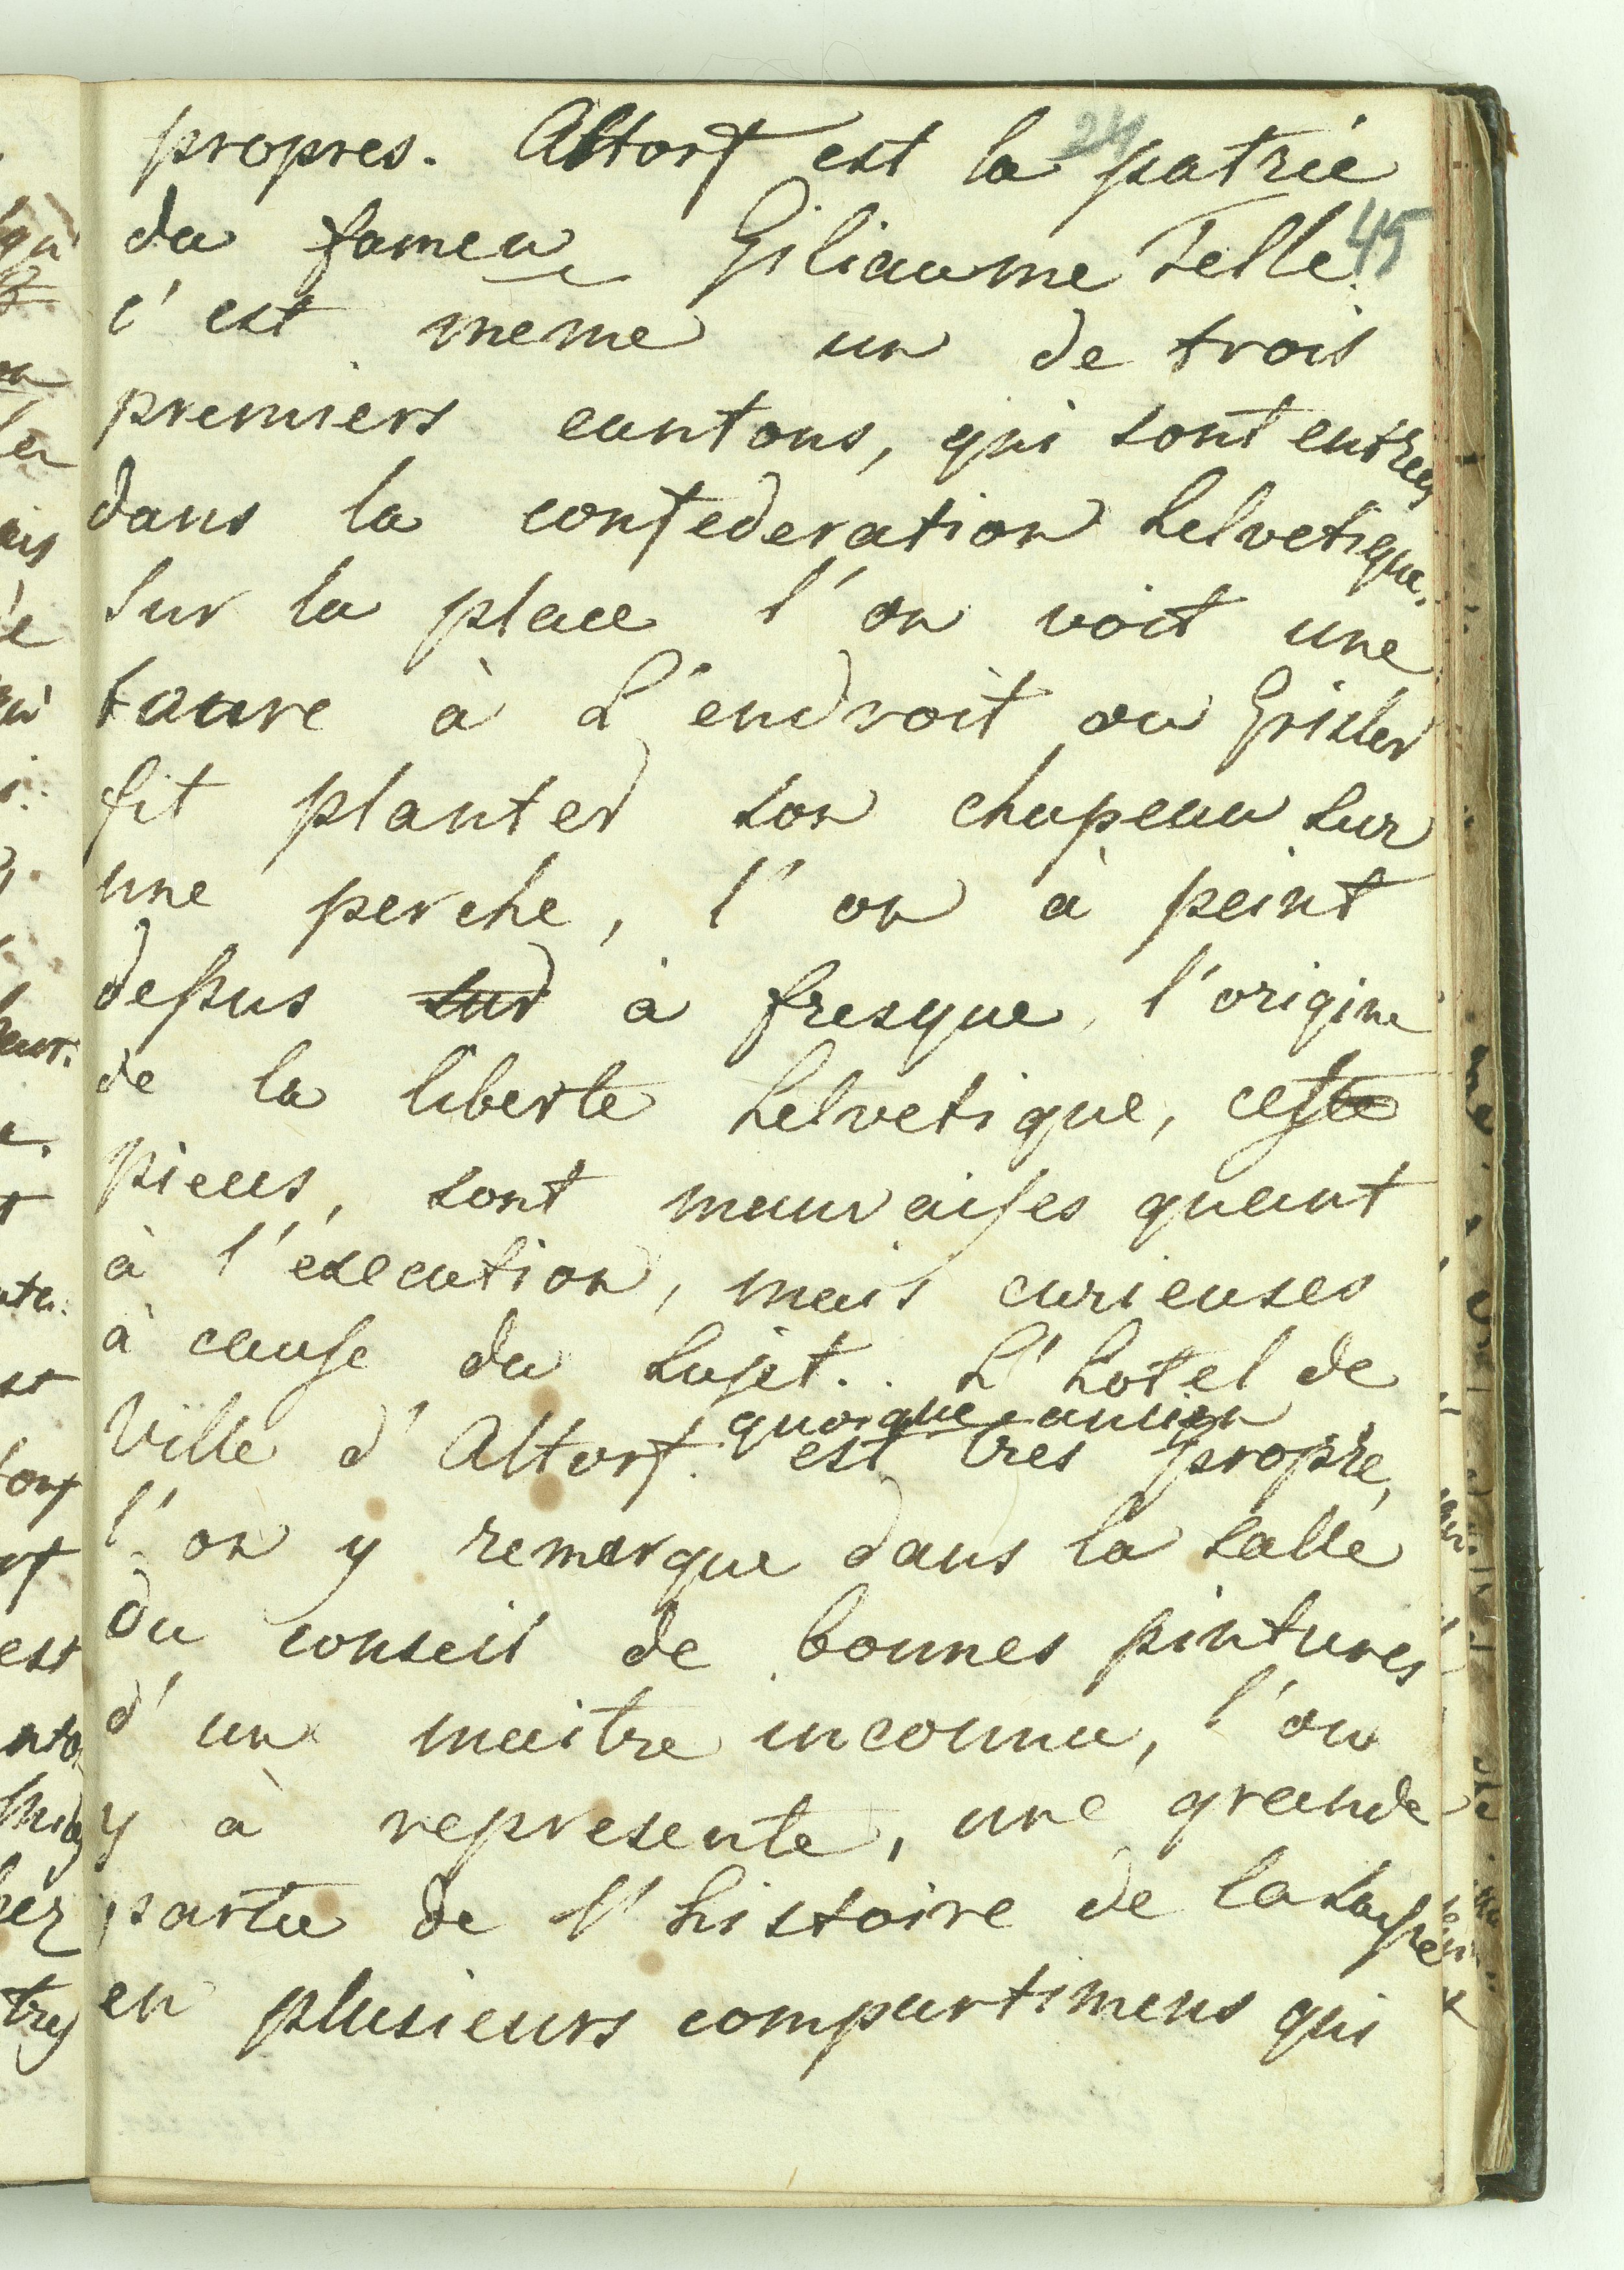 24
propres. Altorf est la patrie
du fameu Giliaume Telle. 45
c'est meme un de trois
premiers cantons, qui sont entrees
dans la confederation helvetique.
Sur la place l'on voit une
toure à L'endroit ou Grisler
fit planter son chapeau sur
une perche, l'on à peint
depus sur à fresque, l'origine
de la liberte helvetique, ceste
pieces, sont mauvaises quant
à l'execution, mais curieuses
à cause du sujet.. L'hotel de
quoique ancien
Ville d'Altorf. est tres propre,
l'on y remarque dans la salle
du conseil de bonnes pintures
d'un maitre inconnu, l'on
y à represente, une grande
partie de l'histoire de la
en plusieurs compartimens qui